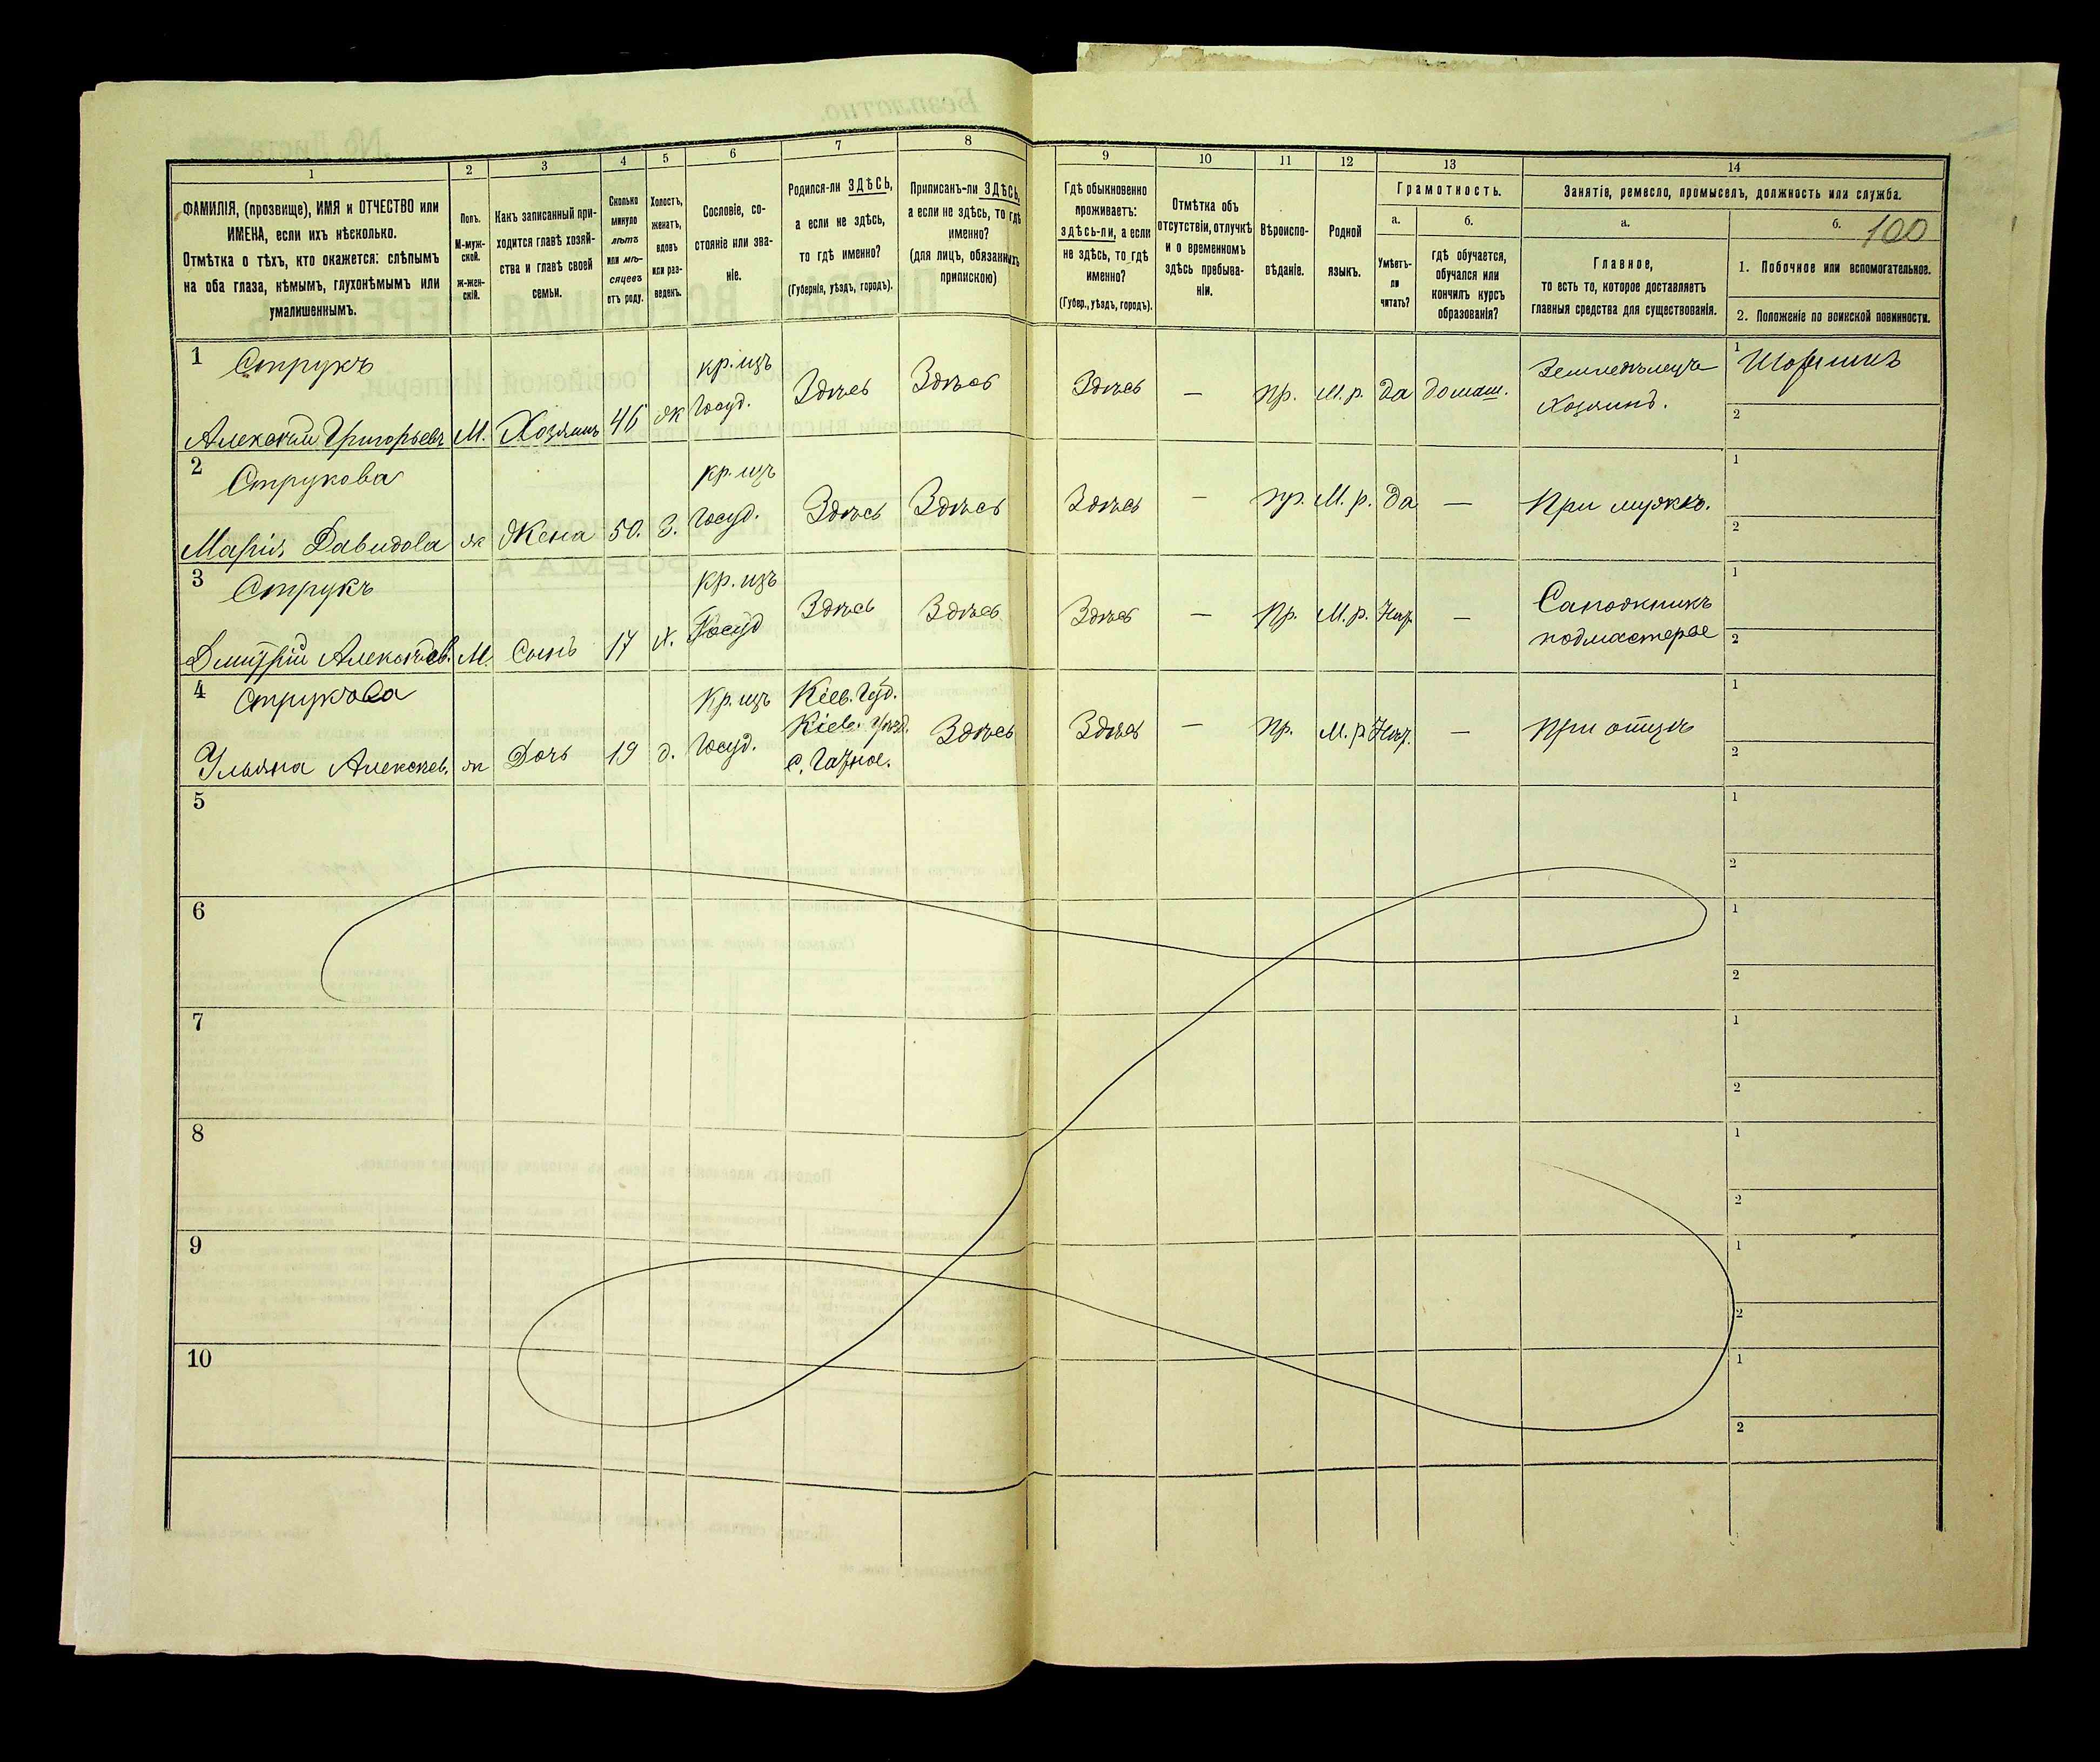 1 2 3 4 5 6 7 8 9 10 11 12 13 14
ФАМИЛІЯ, (прозвище), ИМЯ и ОТЧЕСТВО или
ИМЕНА, если ихъ нѣсколько.
Отмѣтка о тѣхъ, кто окажется: слѣпымъ
на оба глаза, нѣмымъ, глухонѣмымъ или
умалишеннымъ.
Полъ.
М-муж-
ской.
ж-жен-
скій.
Какъ записанный при-
ходится главѣ хозяй-
ства и главѣ своей
семьи.
Сколько
минуло
лѣтъ
или мѣ-
сяцевъ
отъ роду.
Холостъ,
женатъ,
вдовъ
или раз-
веденъ.
Сословіе, со-
стояніе или зва-
ніе.
Родился-ли ЗДѢСЬ,
а если не здѣсь,
то гдѣ именно?
(Губернія, уѣздъ, городъ).
Приписанъ-ли ЗДѢСЬ,
а если не здѣсь, то гдѣ
именно?
(для лицъ, обязанныхъ
припискою)
Гдѣ обыкновенно
проживаетъ:
здѣсь-ли, а если
не здѣсь, то гдѣ
именно?
(Губер., уѣздъ, городъ).
Отмѣтка объ
отсутствіи, отлучкѣ
и о временномъ
здѣсь пребыва-
ніи.
Вѣроиспо-
вѣданіе.
Родной
языкъ.
Грамотность.
а.
Умѣетъ-
ли
читать?
б.
гдѣ обучается,
обучался или
кончилъ курсъ
образованія?
Занятіе, ремесло, промыселъ, должность или служба.
а.
Главное,
то есть то, которое доставляетъ
главныя средства для существованія.
б.
100
1. Побочное или вспомогательное.
2. Положеніе по воинской повинности.
1 Струкъ
Алексѣй Григорьевъ М. Хозяинъ 46 ж
кр. изъ
Госуд.
Здѣсь Здѣсь Здѣсь — пр. М. р. Да домаш.
Земледѣлецъ
Хозяинъ.
1
2
2 Струкова
Марія Давидова ж Жена 50. З.
кр. изъ
Госуд.
Здѣсь Здѣсь Здѣсь — пр. М. р. Да — При мужѣ.
1
2
3 Струкъ
Дмитрій Алексѣев. М. Сынъ 17 х.
кр. изъ
Госуд
Здѣсь Здѣсь Здѣсь — Пр. М. р. —
Сапожникъ
подмастерье
1
2
4 Струкова
Ульяна Алексѣев. ж Дочь 19 д.
Кр. изъ
Госуд.
Кіев. Губ.
Кіев. Уѣзд.
с. Гатное.
Здѣсь Здѣсь — Пр. М. р — При отцѣ
1
2
5
1
2
6
1
2
7
1
2
8
1
2
9
1
2
10
1
2